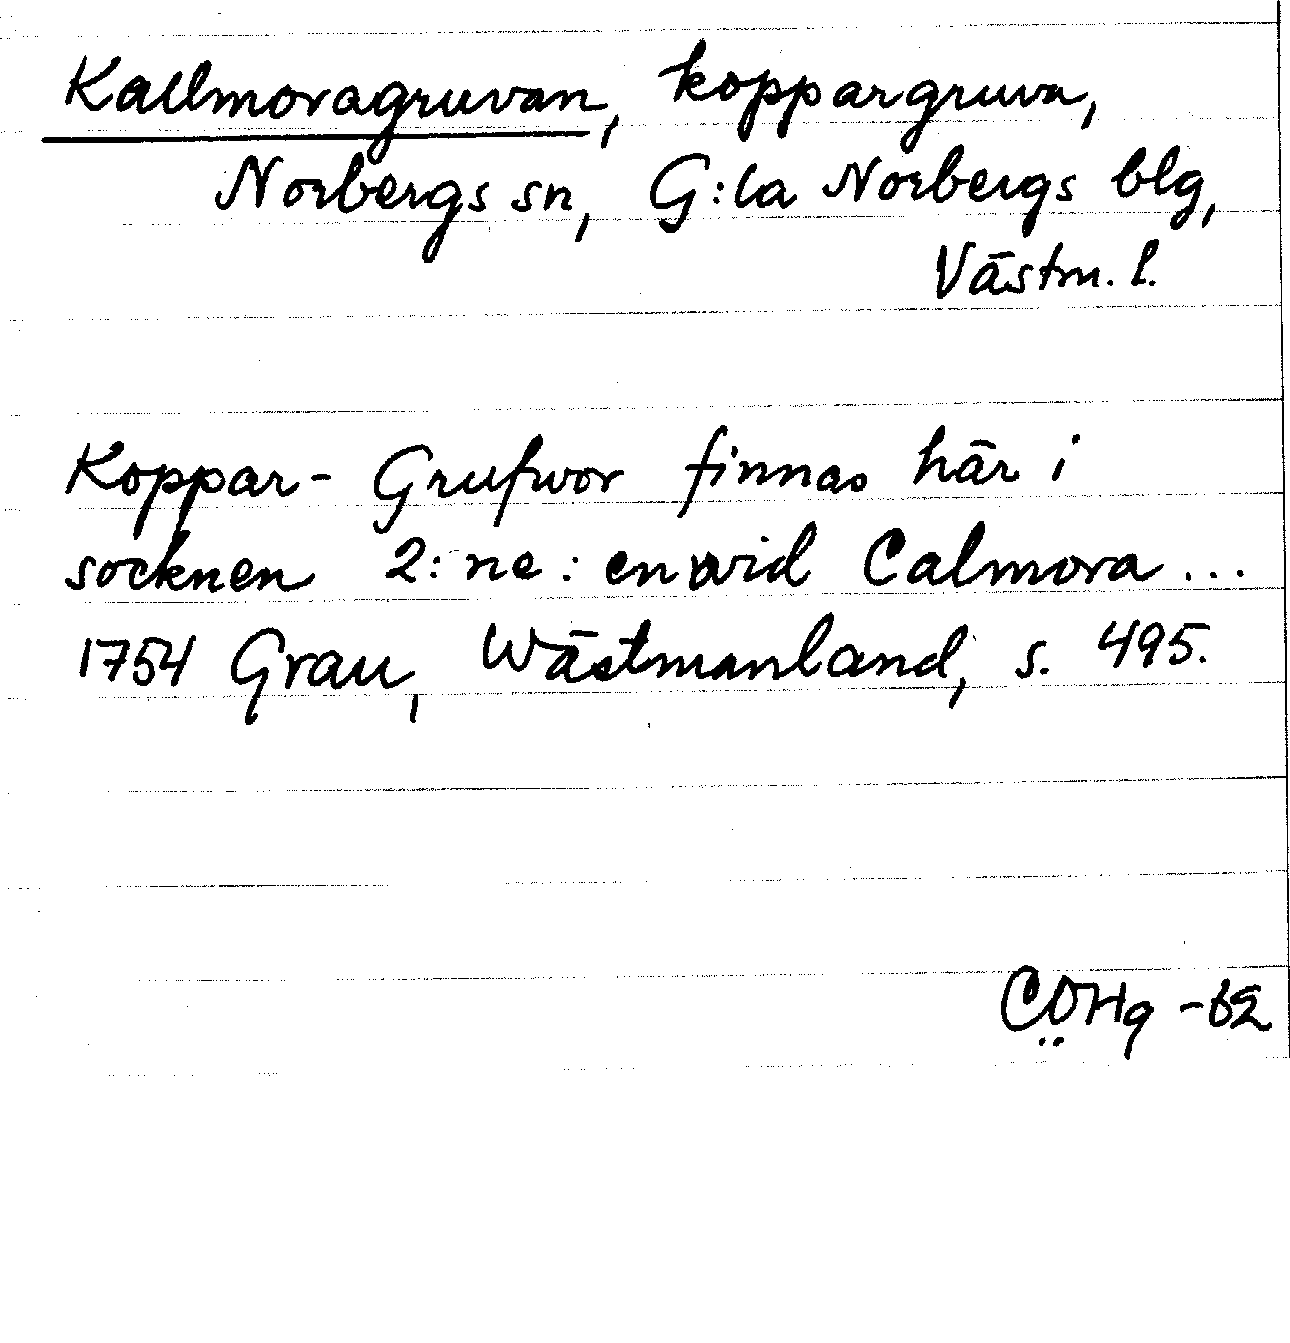 Kallmoragruvan, koppargruva,
Norbergs sn, G:la Norbergs blg,
Västm. l.
Koppar- Grufwor finnas här i
socknen 2:ne: en wid Calmora ...
1754 Grau, Wästmanland, s. 495.
CÖHg -62